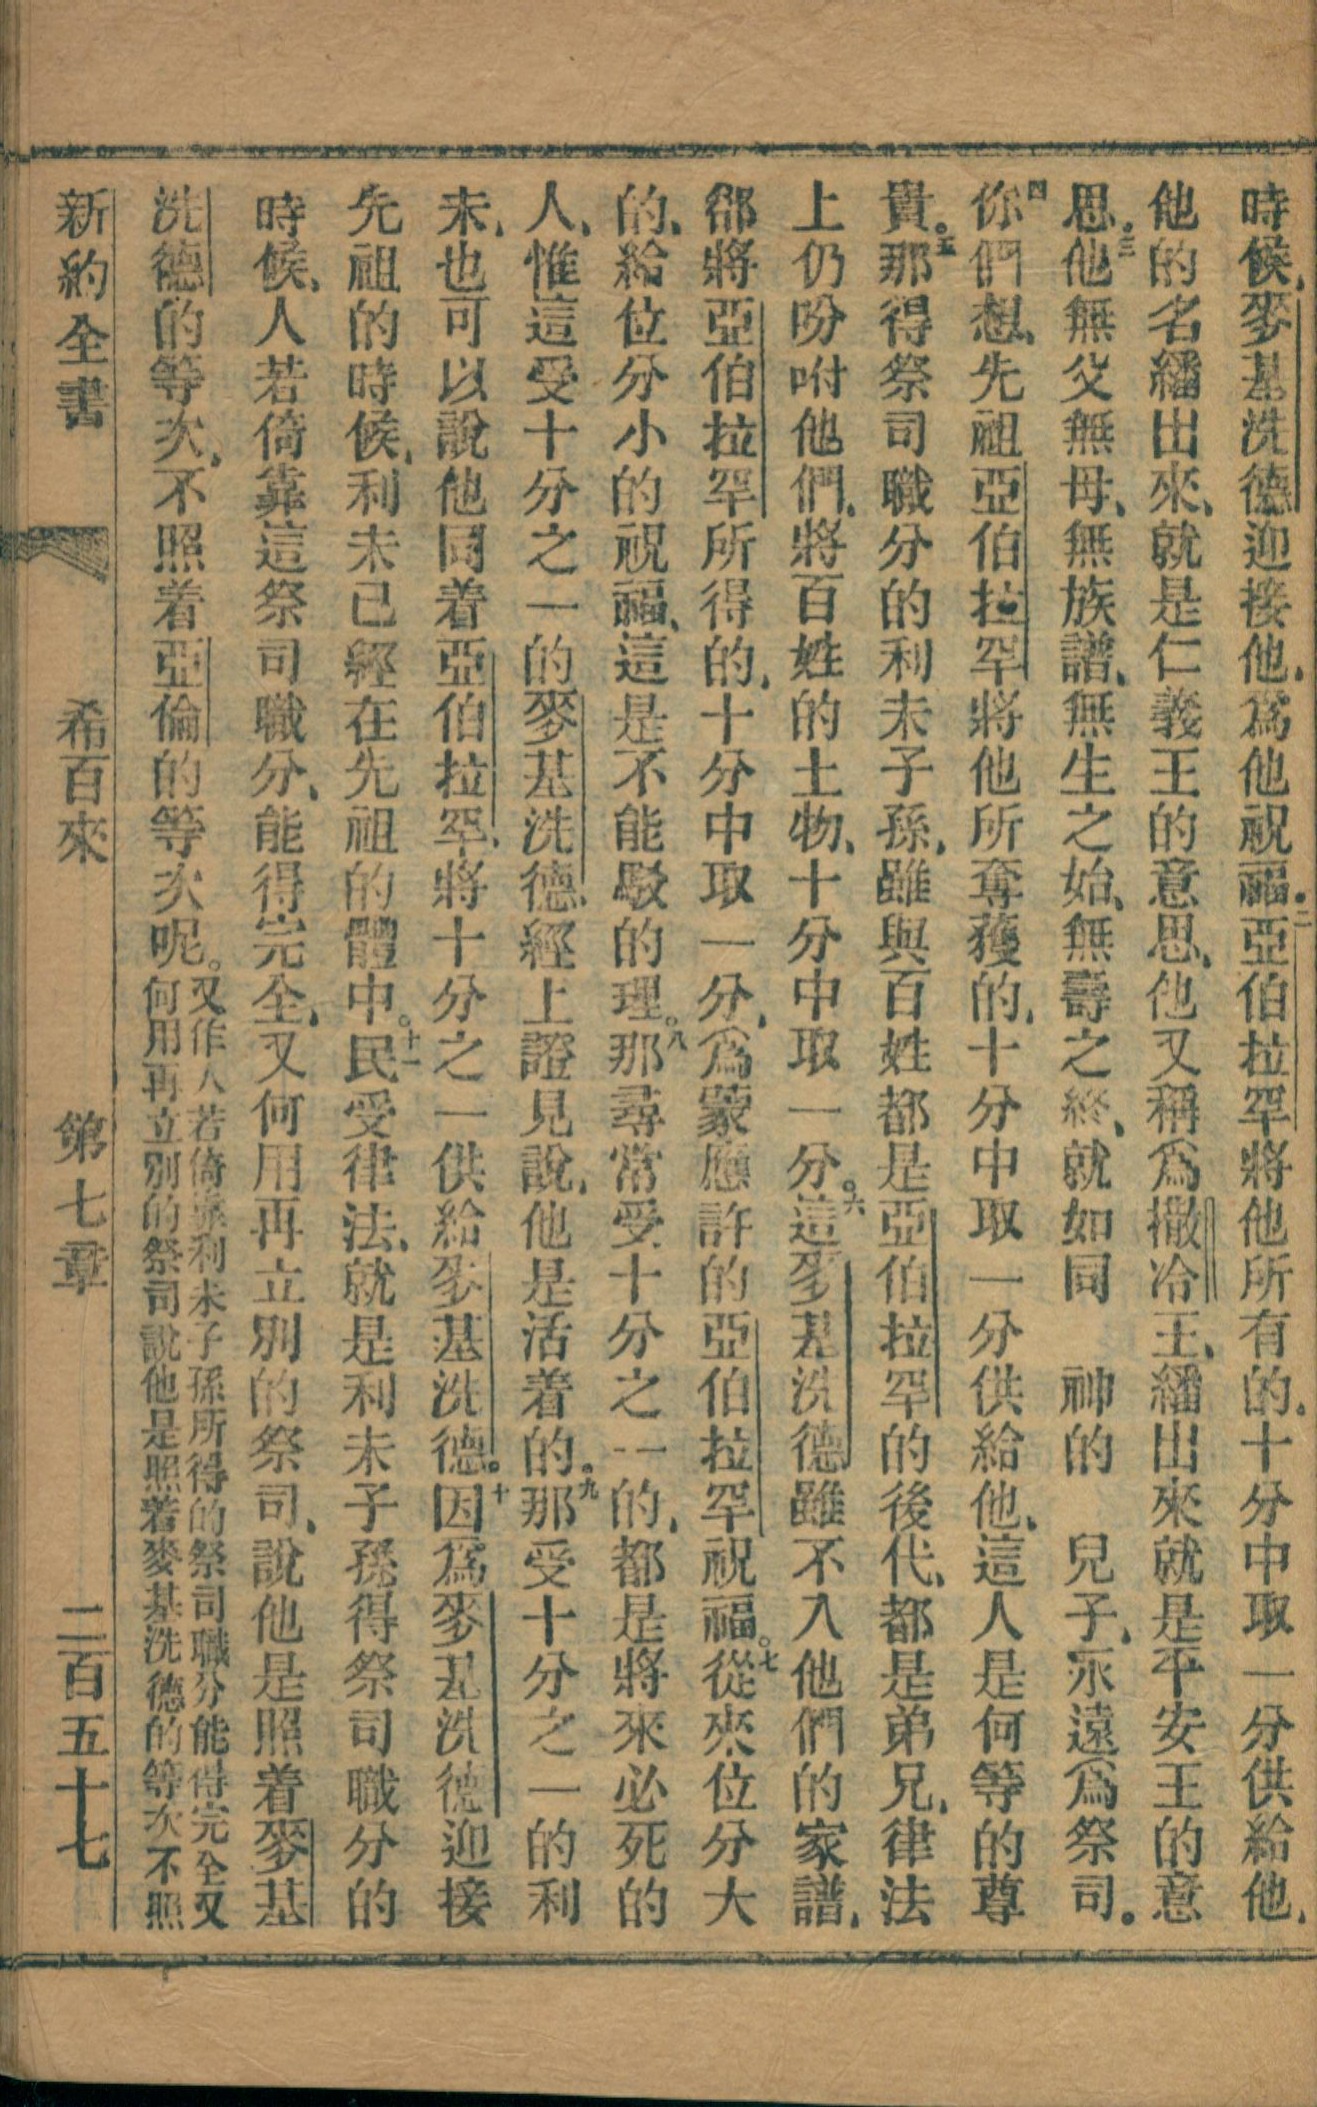 時候、麥基洗德迎接他、爲他祝福。二亞伯拉罕將他所有的、十分中取一分供給他、
他的名繙出來、就是仁義王的意思、他又稱爲撒冷王、繙出來就是平安王的意
思。三他無父無母、無族譜、無生之始、無壽之終、就如同　神的　兒子、永遠爲祭司。
四你們想、先祖亞伯拉罕將他所奪獲的、十分中取一分供給他、這人是何等的尊
貴。五那得祭司職分的利未子孫、雖與百姓都是亞伯拉罕的後代、都是弟兄、律法
上仍吩咐他們、將百姓的土物、十分中取一分。六這麥基洗德雖不入他們的家譜、
郤將亞伯拉罕所得的、十分中取一分、爲蒙應許的亞伯拉罕祝福。七從來位分大
的、給位分小的祝福、這是不能駁的理。八那尋常受十分之一的、都是將來必死的
人、惟這受十分之一的麥基洗德、經上證見說、他是活着的。九那受十分之一的利
未、也可以說他同着亞伯拉罕、將十分之一供給麥基洗德。十因爲麥基洗德迎接
先祖的時候、利未已經在先祖的體中。十一民受律法、就是利未子孫得祭司職分的
時候、人若倚靠這祭司職分、能得完全、又何用再立別的祭司、說他是照着麥基
洗德的等次、不照着亞倫的等次呢。又作人若倚靠利未子孫所得的祭司職分能得完全又
何用再立別的祭司說他是照着麥基洗德的等次不照
新約全書　希百來　第七章　二百五十七